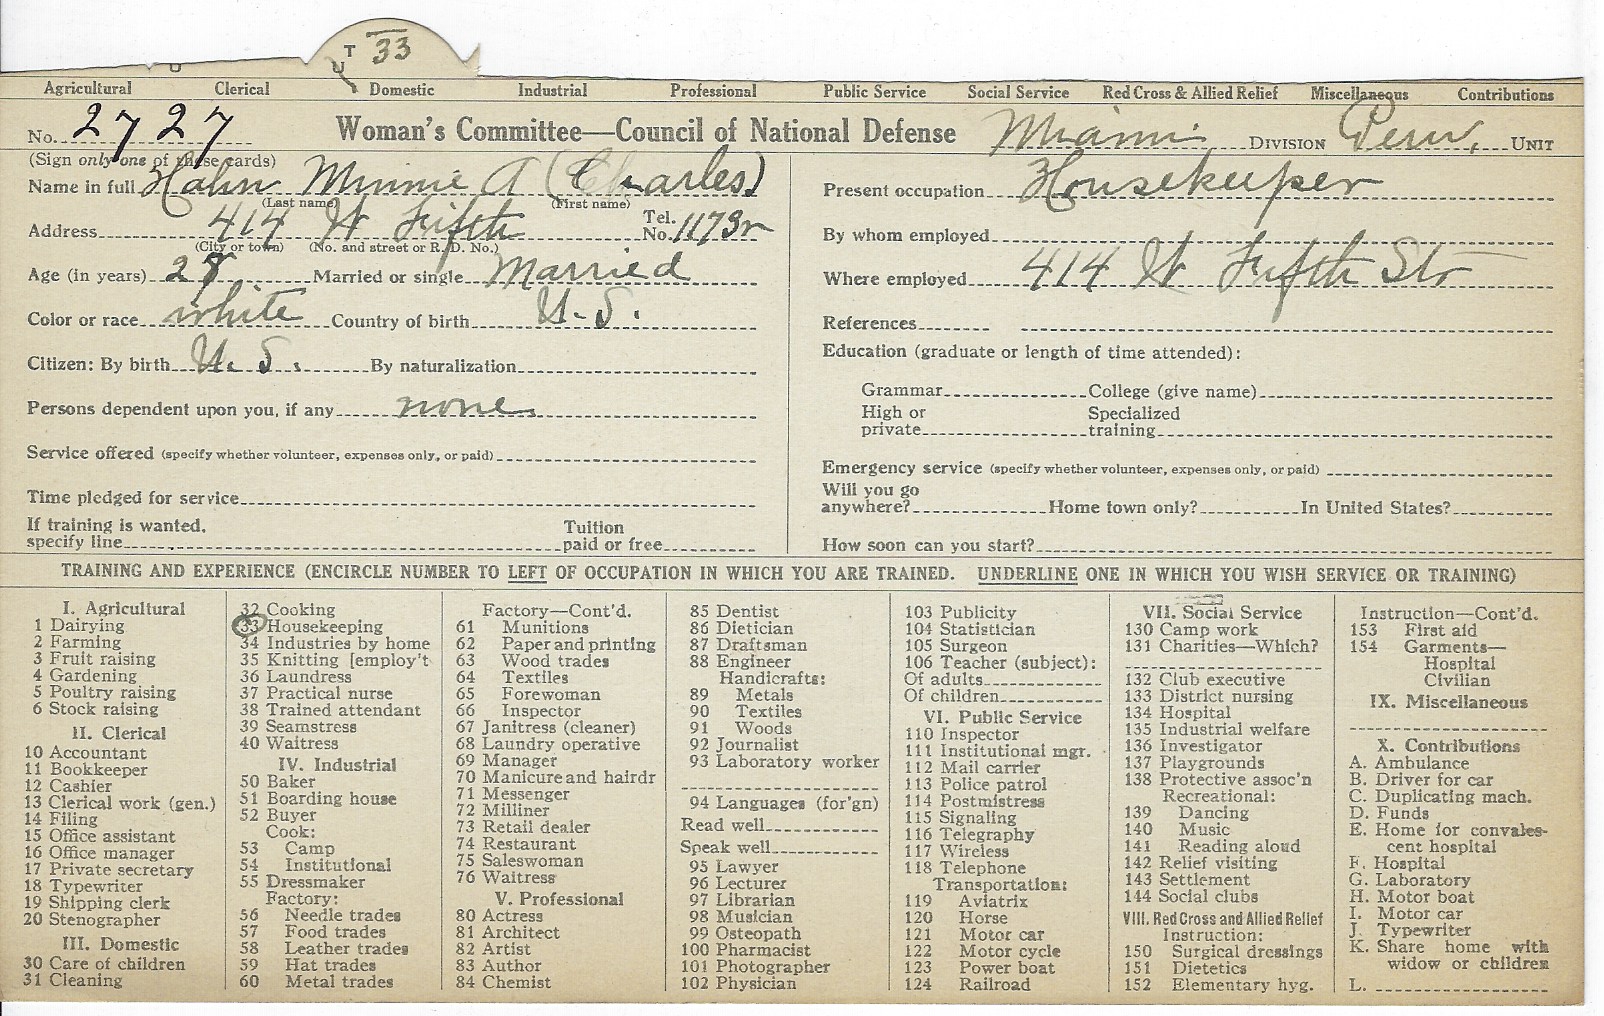 T 33
U
Agricultural Clerical Domestic Industrial Professional Public Service Social Service Red Cross & Allied Relief Miscellaneous Contributions
No. 2727 Woman's Committee—Council of National Defense Miami DIVISION Peru, UNIT
(Sign only one of these cards)
Name in full Hahn Minnie A (Charles)
(Last name) (First name)
Address 414 W Fifth Tel. No. 1173r
(City or town) (No. and street or R. D. No.)
Age (in years) 28 Married or single Married
Color or race white Country of birth U.S.
Citizen: By birth U.S. By naturalization
Persons dependent upon you, if any none
Service offered (specify whether volunteer, expenses only, or paid)
Time pledged for service
If training is wanted, specify line Tuition paid or free
Present occupation Housekeeper
By whom employed
Where employed 414 W Fifth St
References
Education (graduate or length of time attended):
Grammar College (give name)
High or private Specialized training
Emergency service (specify whether volunteer, expenses only, or paid)
Will you go anywhere? Home town only? In United States?
How soon can you start?
TRAINING AND EXPERIENCE (ENCIRCLE NUMBER TO LEFT OF OCCUPATION IN WHICH YOU ARE TRAINED. UNDERLINE ONE IN WHICH YOU WISH SERVICE OR TRAINING)
I. Agricultural
1 Dairying
2 Farming
3 Fruit raising
4 Gardening
5 Poultry raising
6 Stock raising
II. Clerical
10 Accountant
11 Bookkeeper
12 Cashier
13 Clerical work (gen.)
14 Filing
15 Office assistant
16 Office manager
17 Private secretary
18 Typewriter
19 Shipping clerk
20 Stenographer
III. Domestic
30 Care of children
31 Cleaning
32 Cooking
33 Housekeeping
34 Industries by home
35 Knitting [employ't
36 Laundress
37 Practical nurse
38 Trained attendant
39 Seamstress
40 Waitress
IV. Industrial
50 Baker
51 Boarding house
52 Buyer
Cook:
53 Camp
54 Institutional
55 Dressmaker
Factory:
56 Needle trades
57 Food trades
58 Leather trades
59 Hat trades
60 Metal trades
Factory—Cont'd.
61 Munitions
62 Paper and printing
63 Wood trades
64 Textiles
65 Forewoman
66 Inspector
67 Janitress (cleaner)
68 Laundry operative
69 Manager
70 Manicure and hairdr
71 Messenger
72 Milliner
73 Retail dealer
74 Restaurant
75 Saleswoman
76 Waitress
V. Professional
80 Actress
81 Architect
82 Artist
83 Author
84 Chemist
85 Dentist
86 Dietician
87 Draftsman
88 Engineer
Handicrafts:
89 Metals
90 Textiles
91 Woods
92 Journalist
93 Laboratory worker
94 Languages (for'gn)
Read well
Speak well
95 Lawyer
96 Lecturer
97 Librarian
98 Musician
99 Osteopath
100 Pharmacist
101 Photographer
102 Physician
103 Publicity
104 Statistician
105 Surgeon
106 Teacher (subject):
Of adults
Of children
VI. Public Service
110 Inspector
111 Institutional mgr.
112 Mail carrier
113 Police patrol
114 Postmistress
115 Signaling
116 Telegraphy
117 Wireless
118 Telephone
Transportation:
119 Aviatrix
120 Horse
121 Motor car
122 Motor cycle
123 Power boat
124 Railroad
VII. Social Service
130 Camp work
131 Charities—Which?
132 Club executive
133 District nursing
134 Hospital
135 Industrial welfare
136 Investigator
137 Playgrounds
138 Protective assoc'n
Recreational:
139 Dancing
140 Music
141 Reading aloud
142 Relief visiting
143 Settlement
144 Social clubs
VIII. Red Cross and Allied Relief
Instruction:
150 Surgical dressings
151 Dietetics
152 Elementary hyg.
Instruction—Cont'd.
153 First aid
154 Garments—
Hospital
Civilian
IX. Miscellaneous
X. Contributions
A. Ambulance
B. Driver for car
C. Duplicating mach.
D. Funds
E. Home for convales-
cent hospital
F. Hospital
G. Laboratory
H. Motor boat
I. Motor car
J. Typewriter
K. Share home with
widow or children
L.